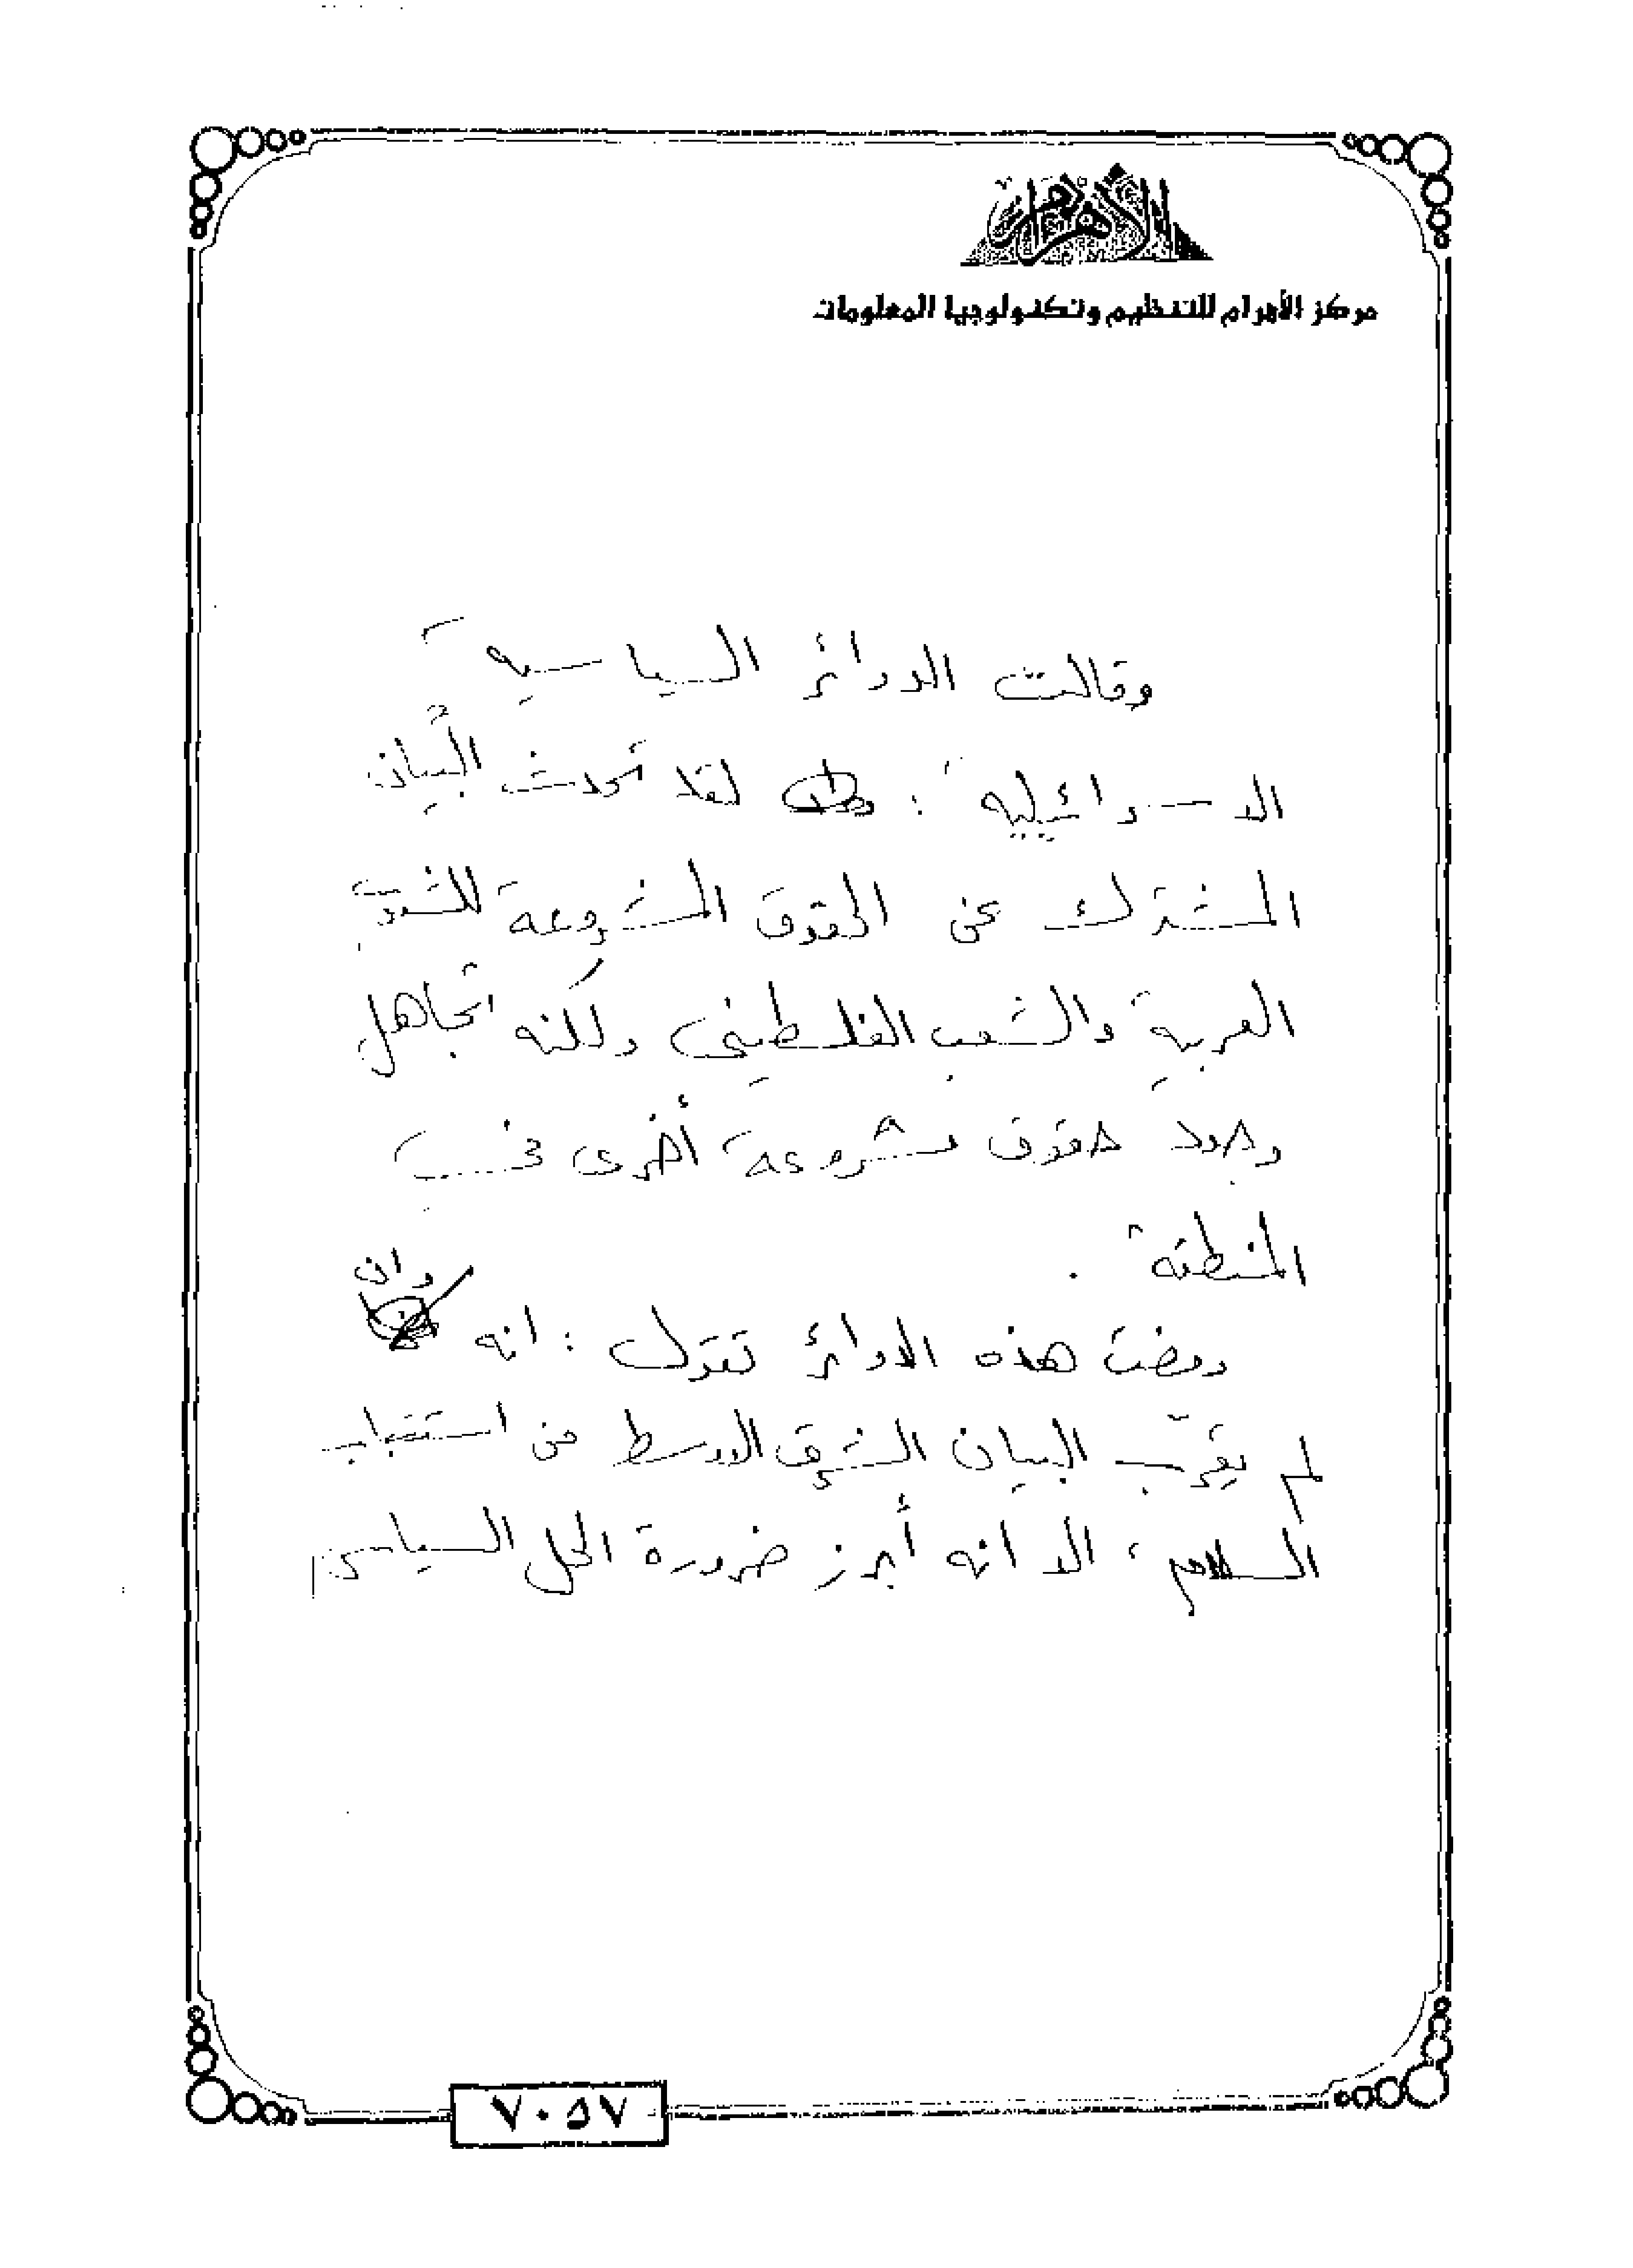 الأهرام
مركز الأهرام للتنظيم وتكنولوجيا المعلومات
وقالت الدوائر السياسية
الاسرائيلية : لقد تحدث البيان
المشترك عن الحقوق المشروعة للشعوب
العربية والشعب الفلسطيني ولكنه تجاهل
وجود حقوق مشروعة أخرى في
المنطقة .
ومضت هذه الدوائر تقول : انه وان
لم يقرّب البيان الشرق الاوسط من استتباب
السلام ، الا انه أبرز ضرورة الحل السياسي
٧٠٥٧